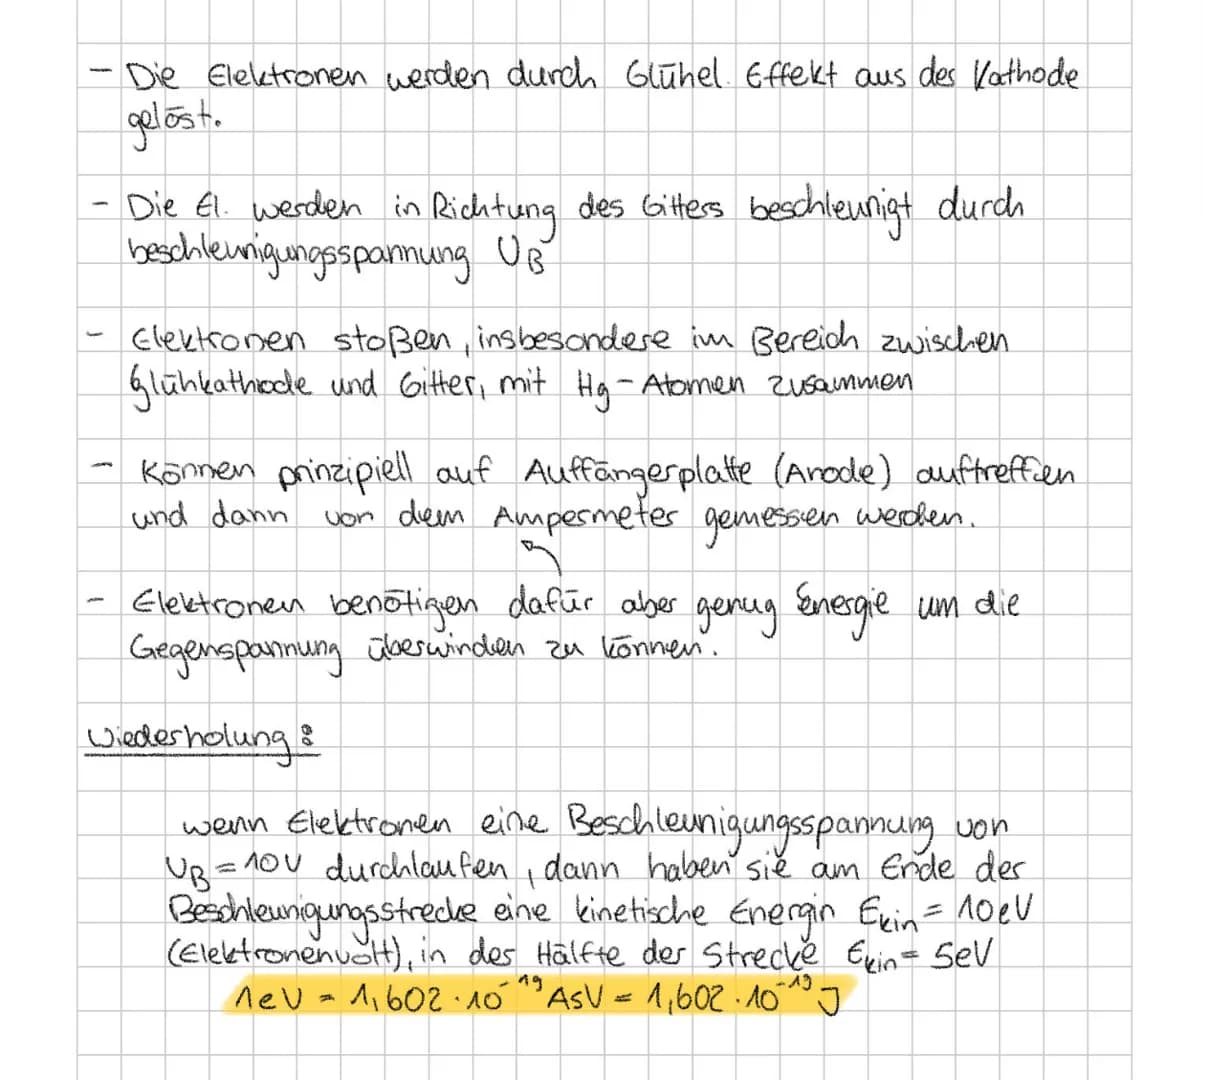 - Die Elektronen werden durch Glühel. Effekt aus der Kathode
gelöst.
- Die El. werden in Richtung des Gitters beschleunigt durch
beschleunigungsspannung UB
- Elektronen stoßen, insbesondere im Bereich zwischen
Glühkathode und Gitter, mit Hg-Atomen zusammen
- Können prinzipiell auf Auffängerplatte (Anode) auftreffen
und dann von dem Ampermeter gemessen werden.
- Elektronen benötigen dafür aber genug Energie um die
Gegenspannung überwinden zu können.
Wiederholung:
wenn Elektronen eine Beschleunigungsspannung von
UB = 10V durchlaufen, dann haben sie am Ende der
Beschleunigungsstrecke eine kinetische Energin Ekin = 10eV
(Elektronenvolt), in der Hälfte der Strecke Ekin = 5eV
1eV = 1,602 · 10⁻¹⁹ AsV = 1,602 · 10⁻¹⁹ J